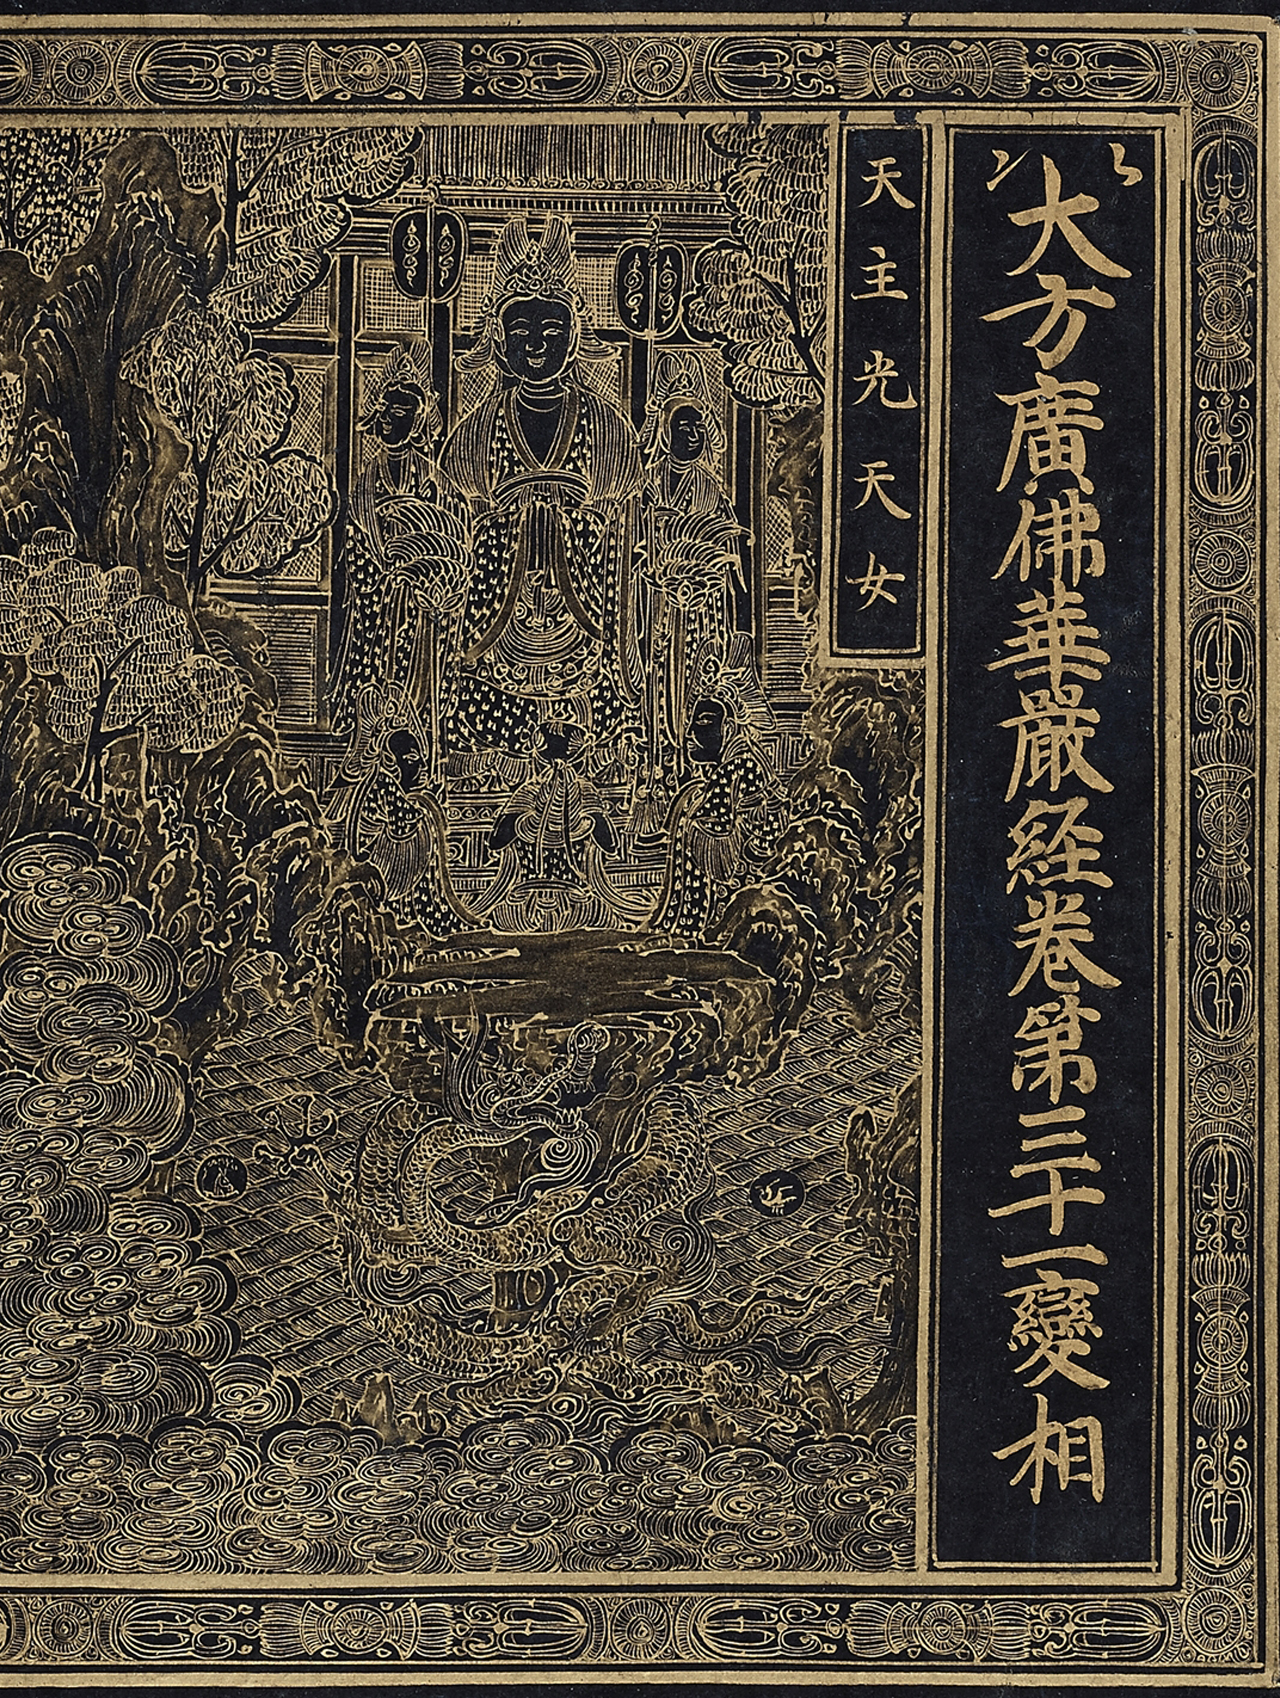 大方廣佛華嚴経卷第三十一變相
天主光天女